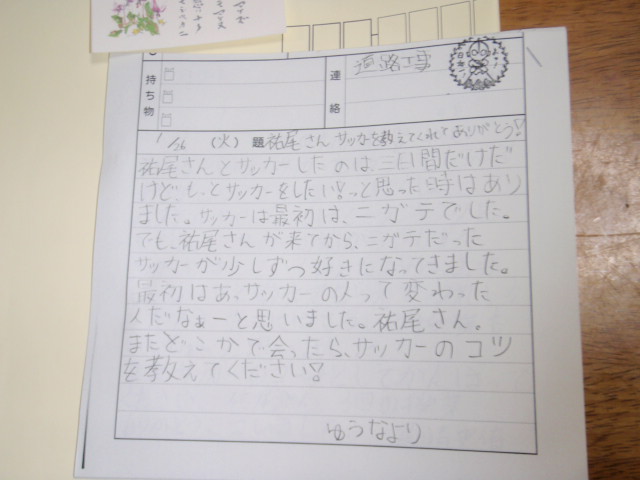 持ち物
連絡
道路工事
1/26 (火) 題 祐尾さん サッカーを教えてくれてありがとう!
祐尾さんとサッカーしたのは三日間だけだ
けど、もっとサッカーをしたい!っと思った時はあり
ました。サッカーは最初は、ニガテでした。
でも、祐尾さんが来てから、ニガテだった
サッカーが少しずつ好きになってきました。
最初はあっサッカーの人って変わった
人だなぁーと思いました。祐尾さん。
またどこかで会ったら、サッカーのコツ
を教えてください!
ゆうなより